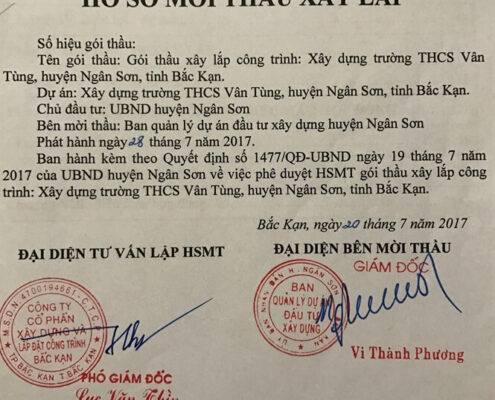 HỒ SƠ MỜI THẦU XÂY LẮP
Số hiệu gói thầu:
Tên gói thầu: Gói thầu xây lắp công trình: Xây dựng trường THCS Vân
Tùng, huyện Ngân Sơn, tỉnh Bắc Kạn.
Dự án: Xây dựng trường THCS Vân Tùng, huyện Ngân Sơn, tỉnh Bắc Kạn.
Chủ đầu tư: UBND huyện Ngân Sơn
Bên mời thầu: Ban quản lý dự án đầu tư xây dựng huyện Ngân Sơn
Phát hành ngày 28 tháng 7 năm 2017.
Ban hành kèm theo Quyết định số 1477/QĐ-UBND ngày 19 tháng 7 năm
2017 của UBND huyện Ngân Sơn về việc phê duyệt HSMT gói thầu xây lắp công
trình: Xây dựng trường THCS Vân Tùng, huyện Ngân Sơn, tỉnh Bắc Kạn.
Bắc Kạn, ngày 20 tháng 7 năm 2017
ĐẠI DIỆN TƯ VẤN LẬP HSMT
ĐẠI DIỆN BÊN MỜI THẦU
GIÁM ĐỐC
M.S.D.N: 4700194661-C.T.C.P
CÔNG TY
CỔ PHẦN
XÂY DỰNG VÀ
LẮP ĐẶT CÔNG TRÌNH
BẮC KẠN
TP. BẮC KẠN T. BẮC KẠN
BAN
QUẢN LÝ DỰ ÁN
ĐẦU TƯ
XÂY DỰNG
Vi Thành Phương
PHÓ GIÁM ĐỐC
Lục Văn Thìn